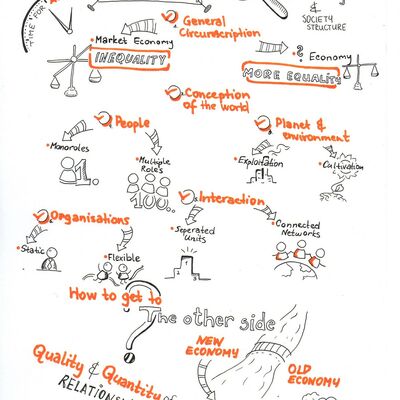 TIME FOR
&
SOCIETY
STRUCTURE
General
Circumscription
Market Economy
INEQUALITY
? Economy
MORE EQUALITY
Conception
of the world
People
Planet &
environment
Monoroles
Multiple
Roles
Exploitation
Cultivation
1.
100...
Interaction
Organisations
Static
Flexible
Seperated
Units
Connected
Networks
1
How to get to
The other side
?
NEW
ECONOMY
OLD
ECONOMY
Quality & Quantity of